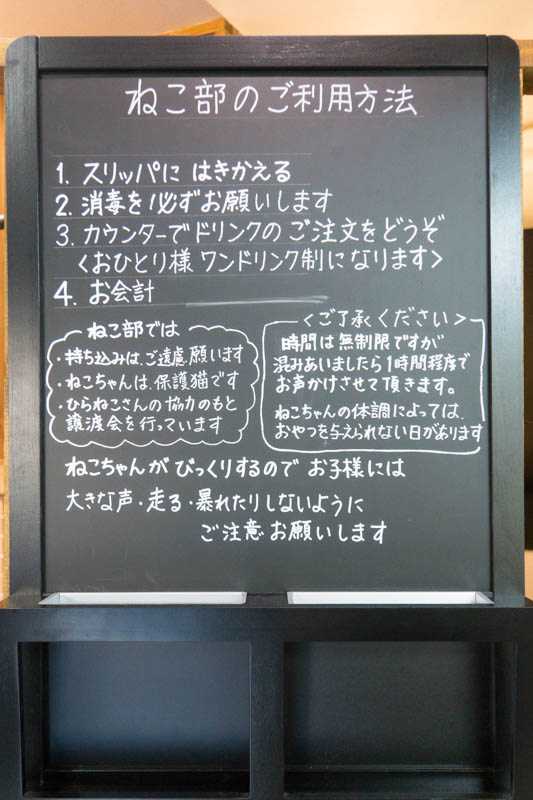 ねこ部のご利用方法
1. スリッパに はきかえる
2. 消毒を必ずお願いします
3. カウンターでドリンクの ご注文をどうぞ
<おひとり様 ワンドリンク制になります>
4. お会計
ねこ部では
・持ち込みは、ご遠慮 願います
・ねこちゃんは、保護猫です
・ひらねこさんの協力のもと
譲渡会を行っています
<ご了承ください>
時間は無制限ですが
混みあいましたら1時間程度で
お声かけさせて頂きます。
ねこちゃんの体調によっては、
おやつを与えられない日があります
ねこちゃんが びっくりするので お子様には
大きな声・走る・暴れたりしないように
ご注意 お願いします